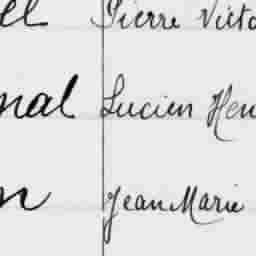 ll Pierre Victo
nal Lucien Hen
n Jean Marie